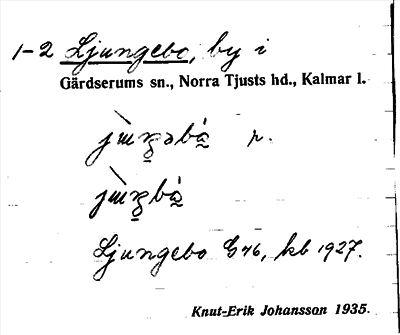 1-2 Ljungebo, by i
Gärdserums sn., Norra Tjusts hd., Kalmar l.
r.
Ljungebo G 46, kb 1927.
Knut-Erik Johansson 1935.